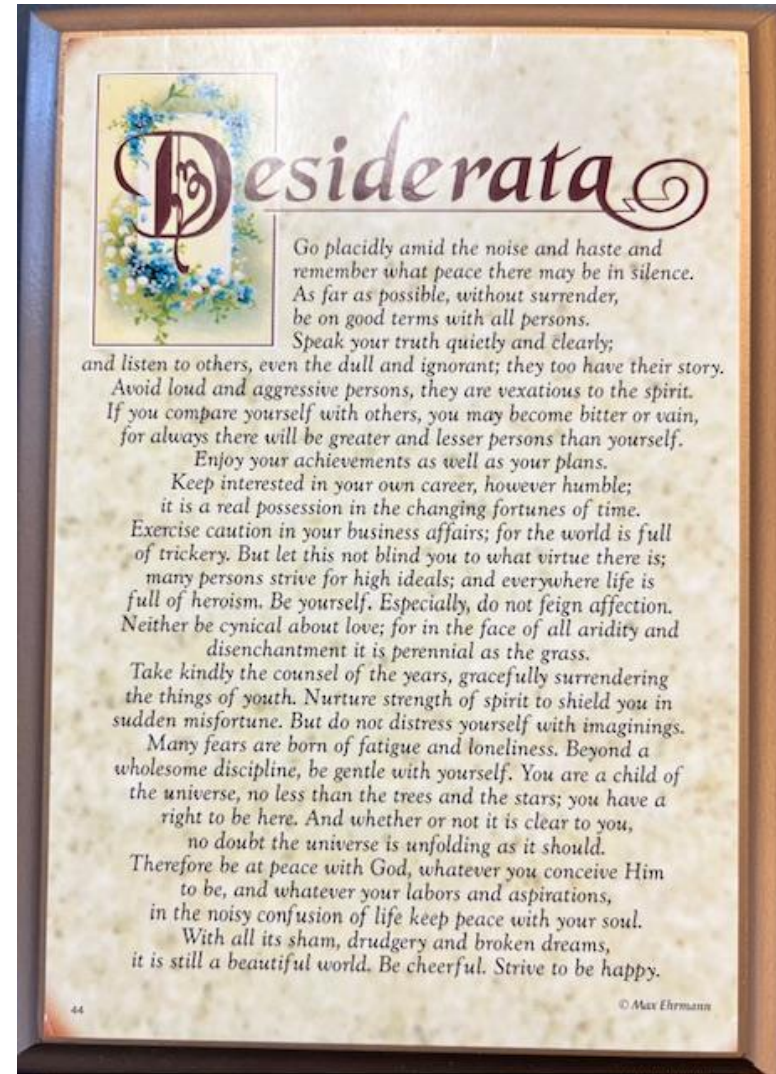 Desiderata
Go placidly amid the noise and haste and
remember what peace there may be in silence.
As far as possible, without surrender,
be on good terms with all persons.
Speak your truth quietly and clearly;
and listen to others, even the dull and ignorant; they too have their story.
Avoid loud and aggressive persons, they are vexatious to the spirit.
If you compare yourself with others, you may become bitter or vain,
for always there will be greater and lesser persons than yourself.
Enjoy your achievements as well as your plans.
Keep interested in your own career, however humble;
it is a real possession in the changing fortunes of time.
Exercise caution in your business affairs; for the world is full
of trickery. But let this not blind you to what virtue there is;
many persons strive for high ideals; and everywhere life is
full of heroism. Be yourself. Especially, do not feign affection.
Neither be cynical about love; for in the face of all aridity and
disenchantment it is perennial as the grass.
Take kindly the counsel of the years, gracefully surrendering
the things of youth. Nurture strength of spirit to shield you in
sudden misfortune. But do not distress yourself with imaginings.
Many fears are born of fatigue and loneliness. Beyond a
wholesome discipline, be gentle with yourself. You are a child of
the universe, no less than the trees and the stars; you have a
right to be here. And whether or not it is clear to you,
no doubt the universe is unfolding as it should.
Therefore be at peace with God, whatever you conceive Him
to be, and whatever your labors and aspirations,
in the noisy confusion of life keep peace with your soul.
With all its sham, drudgery and broken dreams,
it is still a beautiful world. Be cheerful. Strive to be happy.
44
© Max Ehrmann